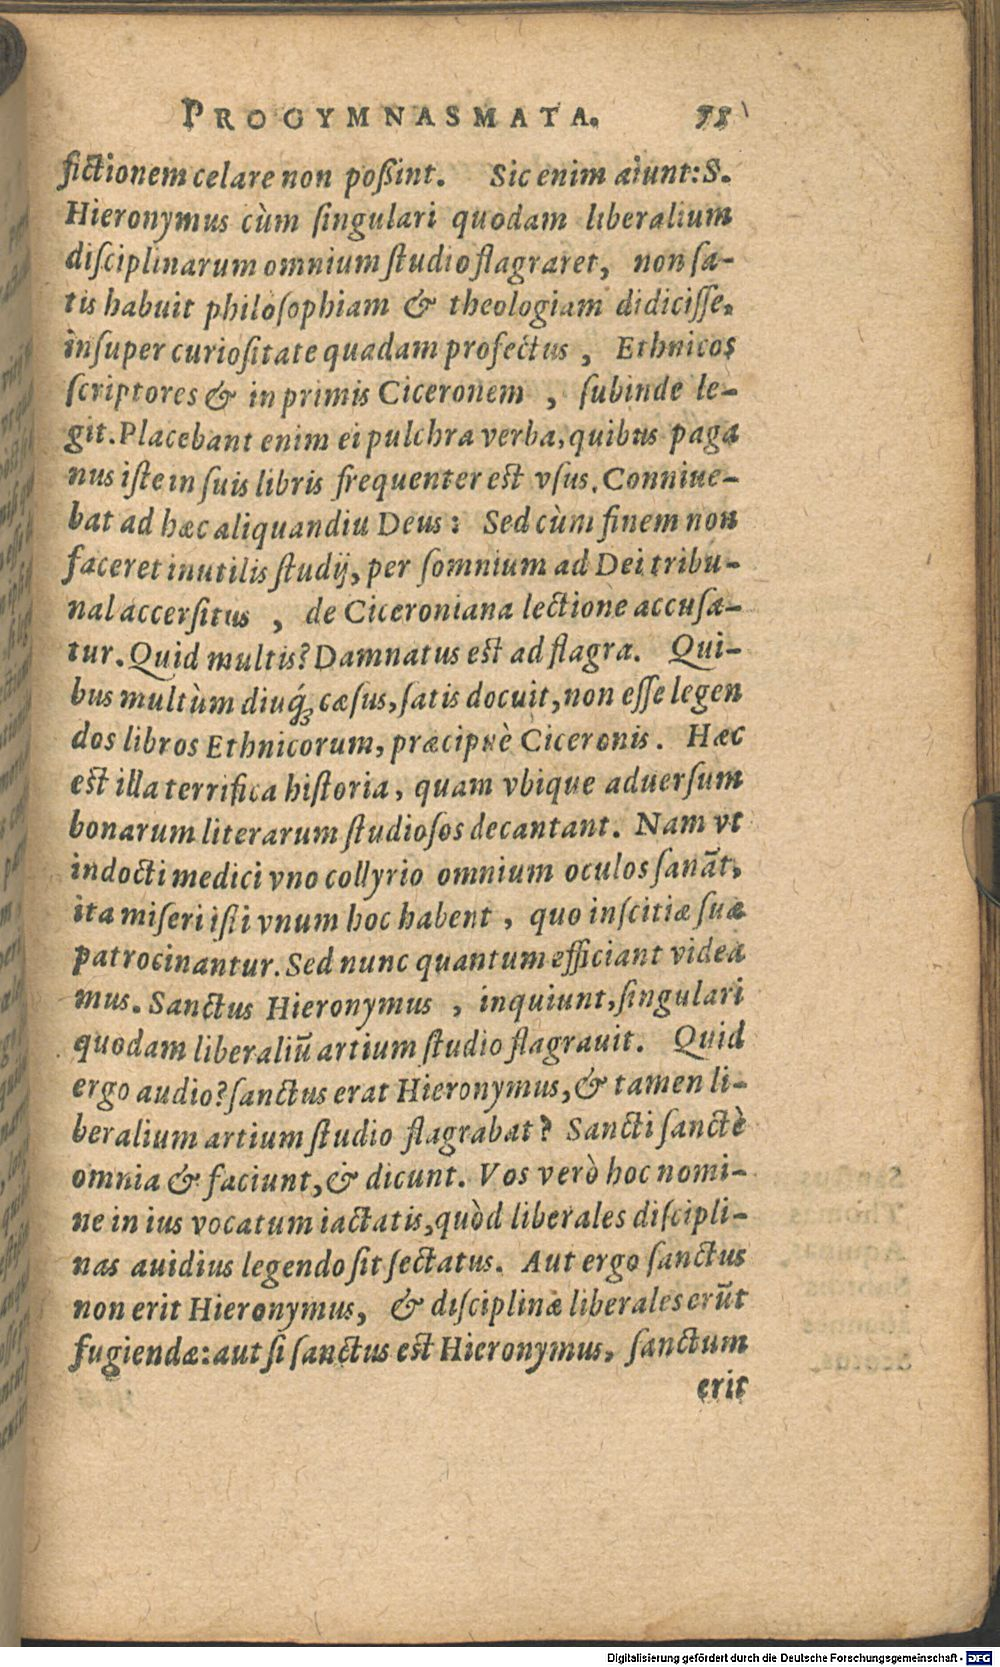 PROGYMNASMATA. 
fictionem celare non poßint. Sic enim aiunt: S.
Hieronymus cùm ſingulari quodam liberalium
diſciplinarum omnium ſtudio flagraret, non ſa-
tis habuit philoſophiam & theologiam didiciſſe,
inſuper curioſitate quadam profectus, Ethnicos
ſcriptores & in primis Ciceronem, ſubinde le-
git. Placebant enim ei pulchra verba, quibus paga
nus iſte in ſuis libris frequenter est vſus. Conniue-
bat ad hæc aliquandiu Deus: Sed cùm finem non
faceret inutilis ſtudij, per ſomnium ad Dei tribu-
nal accerſitus, de Ciceroniana lectione accuſa-
tur. Quid multis? Damnatus est ad flagra. Qui-
bus multùm diuq́; cæſus, ſatis docuit, non eſſe legen
dos libros Ethnicorum, præcipuè Ciceronis. Hæc
est illa terrifica hiſtoria, quam vbique aduerſum
bonarum literarum ſtudioſos decantant. Nam vt
indocti medici vno collyrio omnium oculos ſanãt,
ita miſeri iſti vnum hoc habent, quo inſcitiæ ſuæ
patrocinantur. Sed nunc quantum efficiant videa
mus. Sanctus Hieronymus, inquiunt, ſingulari
quodam liberaliũ artium ſtudio flagrauit. Quid
ergo audio? ſanctus erat Hieronymus, & tamen li-
beralium artium ſtudio flagrabat? Sancti ſanctè
omnia & faciunt, & dicunt. Vos verò hoc nomi-
ne in ius vocatum iactatis, quòd liberales diſcipli-
nas auidius legendo ſit ſectatus. Aut ergo ſanctus
non erit Hieronymus, & diſciplinæ liberales erũt
fugiendæ: aut ſi ſanctus est Hieronymus, ſanctum
erit
Digitalisierung gefördert durch die Deutsche Forschungsgemeinschaft - DFG